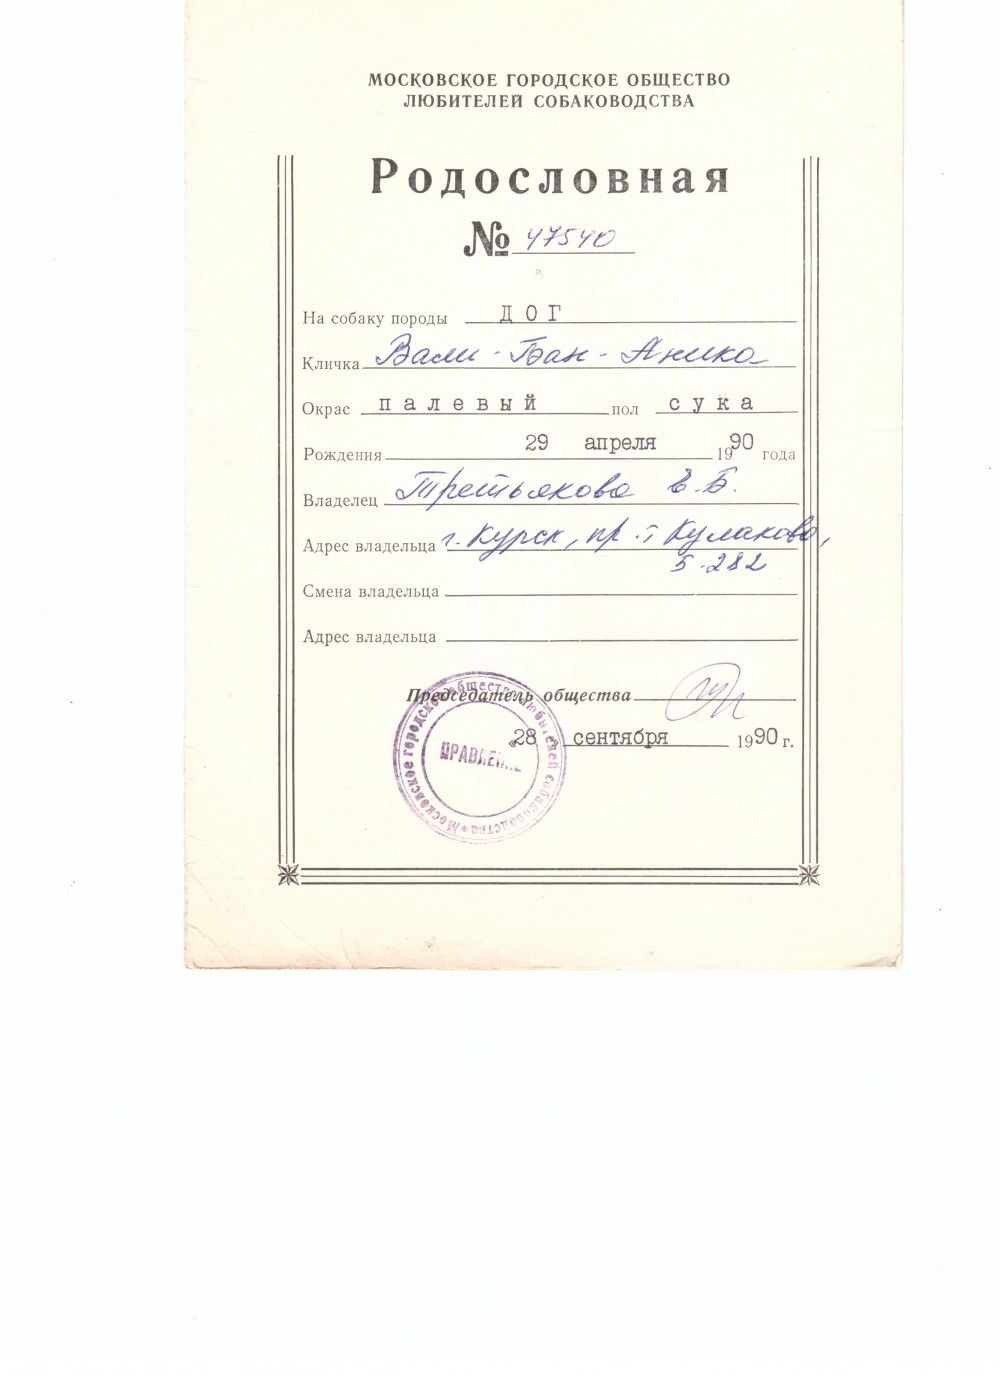 МОСКОВСКОЕ ГОРОДСКОЕ ОБЩЕСТВО
ЛЮБИТЕЛЕЙ СОБАКОВОДСТВА
Родословная
№ 47540
На собаку породы ДОГ
Кличка Вали-Бан-Аника
Окрас палевый пол сука
Рождения 29 апреля 1990 года
Владелец Третьякова Е.Б.
Адрес владельца г. Курск, пр-т Кулакова,
5-282
Смена владельца
Адрес владельца
Председатель общества
«28 сентября 1990 г.
Московское городское общество любителей собаководства *
ПРАВЛЕНИЕ